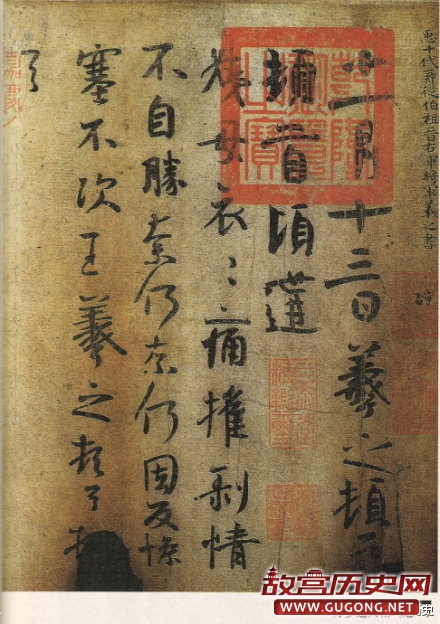 十一月十三日羲之頓首
頓首頃遘
姨母哀哀痛摧剝情
不自勝奈何奈何因反慘
塞不次王羲之頓首頓
首
十代再從伯祖晉右軍將軍羲之書
故宫历史网
WWW.GUGONG.NET